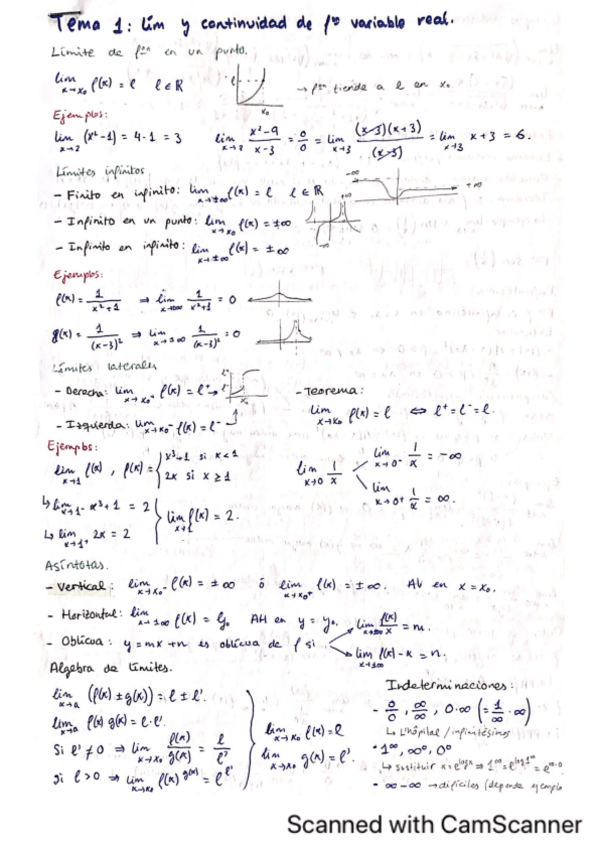 Tema 1: Lím y continuidad de fᵒⁿ variable real.
Límite de fᵒⁿ en un punto.
lim x→x₀ f(x) = l   l ∈ ℝ   → fᵒⁿ tiende a l en x₀
Ejemplos:
lim x→2 (x²-1) = 4-1 = 3   lim x→3 x²-9/x-3 = 0/0 = lim x→3 (x-3)(x+3)/(x-3) = lim x→3 x+3 = 6.
Límites infinitos
- Finito en infinito: lim x→±∞ f(x) = l   l ∈ ℝ
-∞ +∞
- Infinito en un punto: lim x→x₀ f(x) = ±∞
- Infinito en infinito: lim x→±∞ f(x) = ±∞
Ejemplos:
f(x) = 1/x²+1 ⇒ lim x→±∞ 1/x²+1 = 0
g(x) = 1/(x-3)² ⇒ lim x→±∞ 1/(x-3)² = 0
Límites laterales
- Derecha: lim x→x₀⁺ f(x) = l⁺   - Teorema:
- Izquierda: lim x→x₀⁻ f(x) = l⁻   lim x→x₀ f(x) = l ⇔ l⁺ = l⁻ = l.
Ejemplos:
lim x→1 f(x), f(x) = { x³+1 si x < 1   2x si x ≥ 1   lim x→0 1/x   lim x→0⁻ 1/x = -∞
lim x→0⁺ 1/x = ∞.
↳ lim x→1⁻ x³+1 = 2
↳ lim x→1⁺ 2x = 2   } lim x→1 f(x) = 2.
Asíntotas.
- Vertical: lim x→x₀⁻ f(x) = ±∞ ó lim x→x₀⁺ f(x) = ±∞. AV en x = x₀.
- Horizontal: lim x→±∞ f(x) = y₀ AH en y = y₀.   lim x→±∞ f(x)/x = m.
- Oblícua: y = mx+n es oblícua de f si   lim x→±∞ f(x)-x = n.
Algebra de límites.
lim x→a (f(x) ± g(x)) = l ± l'.
lim x→a f(x) g(x) = l·l'.
Si l' ≠ 0 ⇒ lim x→x₀ f(x)/g(x) = l/l'
Si l > 0 ⇒ lim x→x₀ f(x)^g(x) = l^l'
lim x→x₀ f(x) = l
lim x→x₀ g(x) = l'.
Indeterminaciones:
- 0/0, ∞/∞, 0·∞ (= 1/∞ · ∞)
↳ L'hôpital / infinitésimos
• 1^∞, ∞⁰, 0⁰
↳ sustituir x = e^log x ⇒ 1^∞ = e^log 1^∞ = e^∞·0
• ∞-∞ → difíciles (depende ejemplo
Scanned with CamScanner